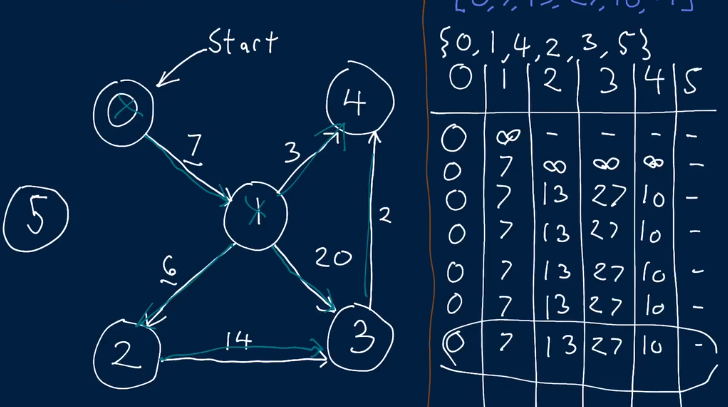 Start
0
4
7
3
5
1
2
20
6
14
3
2
{0,1,4,2,3,5}
0 1 2 3 4 5
0 ∞ - - - -
0 7 ∞ ∞ ∞ -
0 7 13 27 10 -
0 7 13 27 10 -
0 7 13 27 10 -
0 7 13 27 10 -
0 7 13 27 10 -